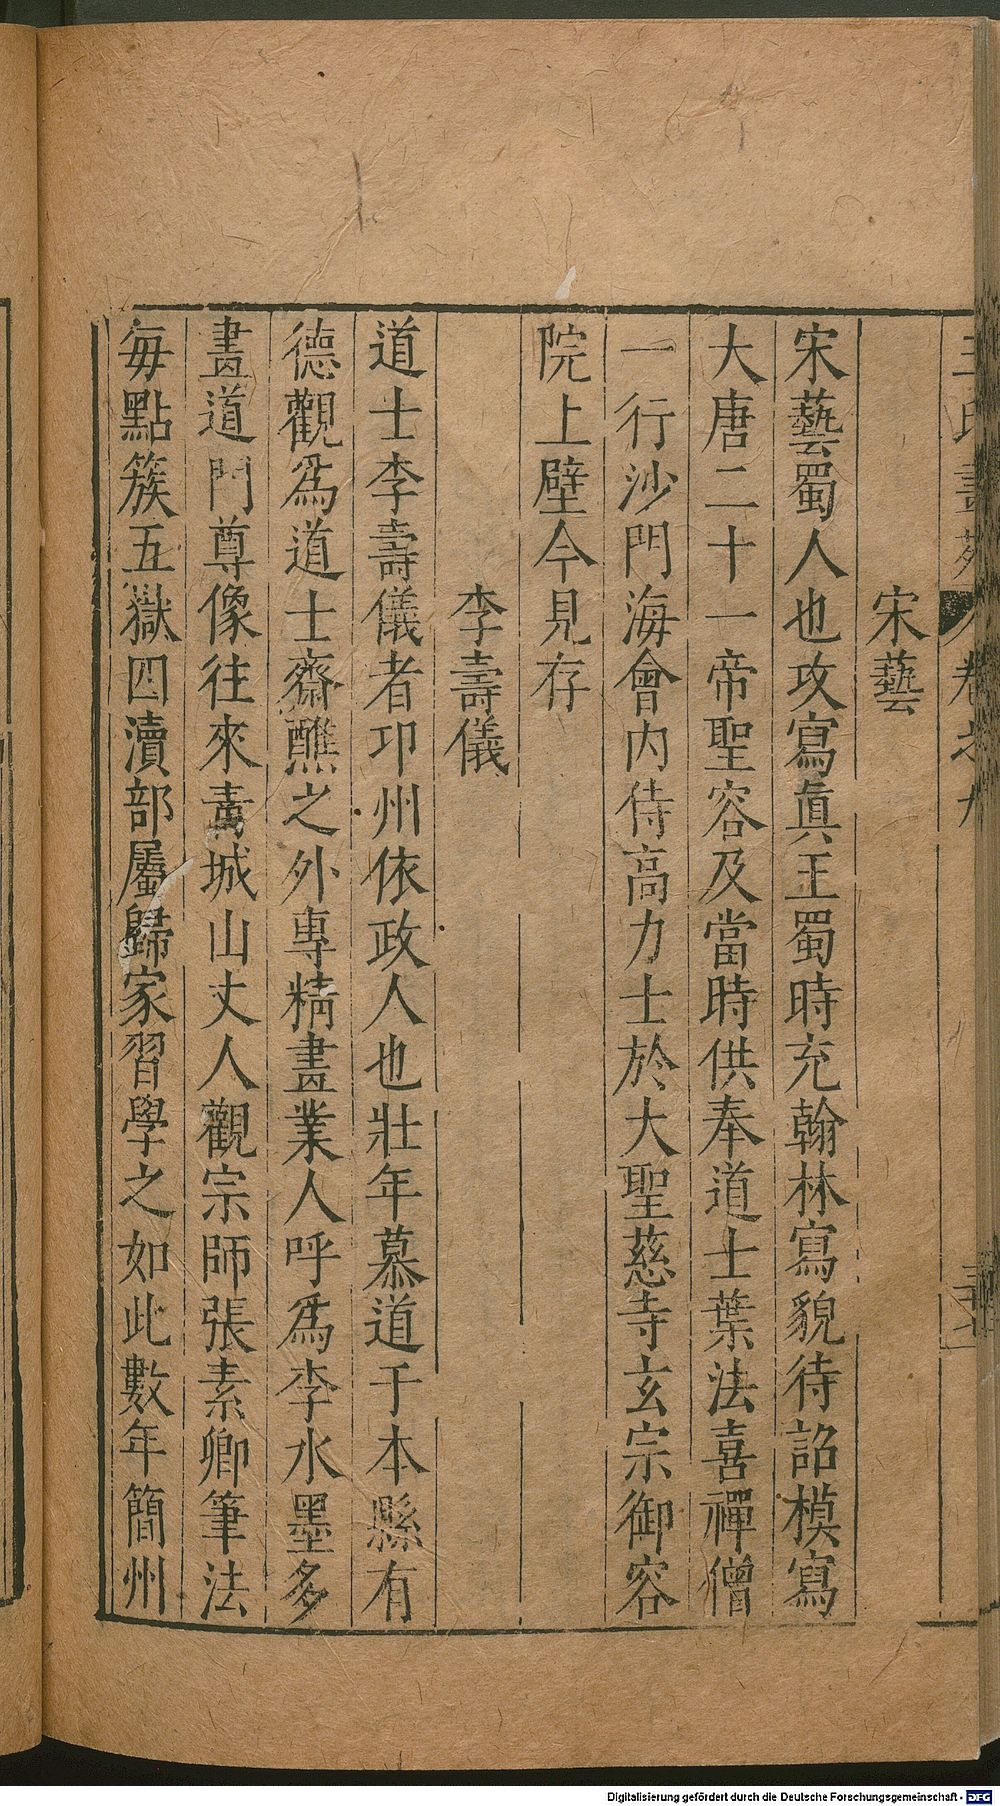 王氏畫苑 卷之九
宋藝
宋藝蜀人也攻寫眞王蜀時充翰林寫貌待詔模寫
大唐二十一帝聖容及當時供奉道士葉法喜禪僧
一行沙門海會內侍高力士於大聖慈寺玄宗御容
院上壁今見存
李壽儀
道士李壽儀者卭州依政人也壯年慕道于本縣有
德觀爲道士齋醮之外專精畫業人呼爲李水墨多
畫道門尊像往來靑城山丈人觀宗師張素卿筆法
每點簇五嶽四瀆部屬歸家習學之如此數年簡州
Digitalisierung gefördert durch die Deutsche Forschungsgemeinschaft - DFG